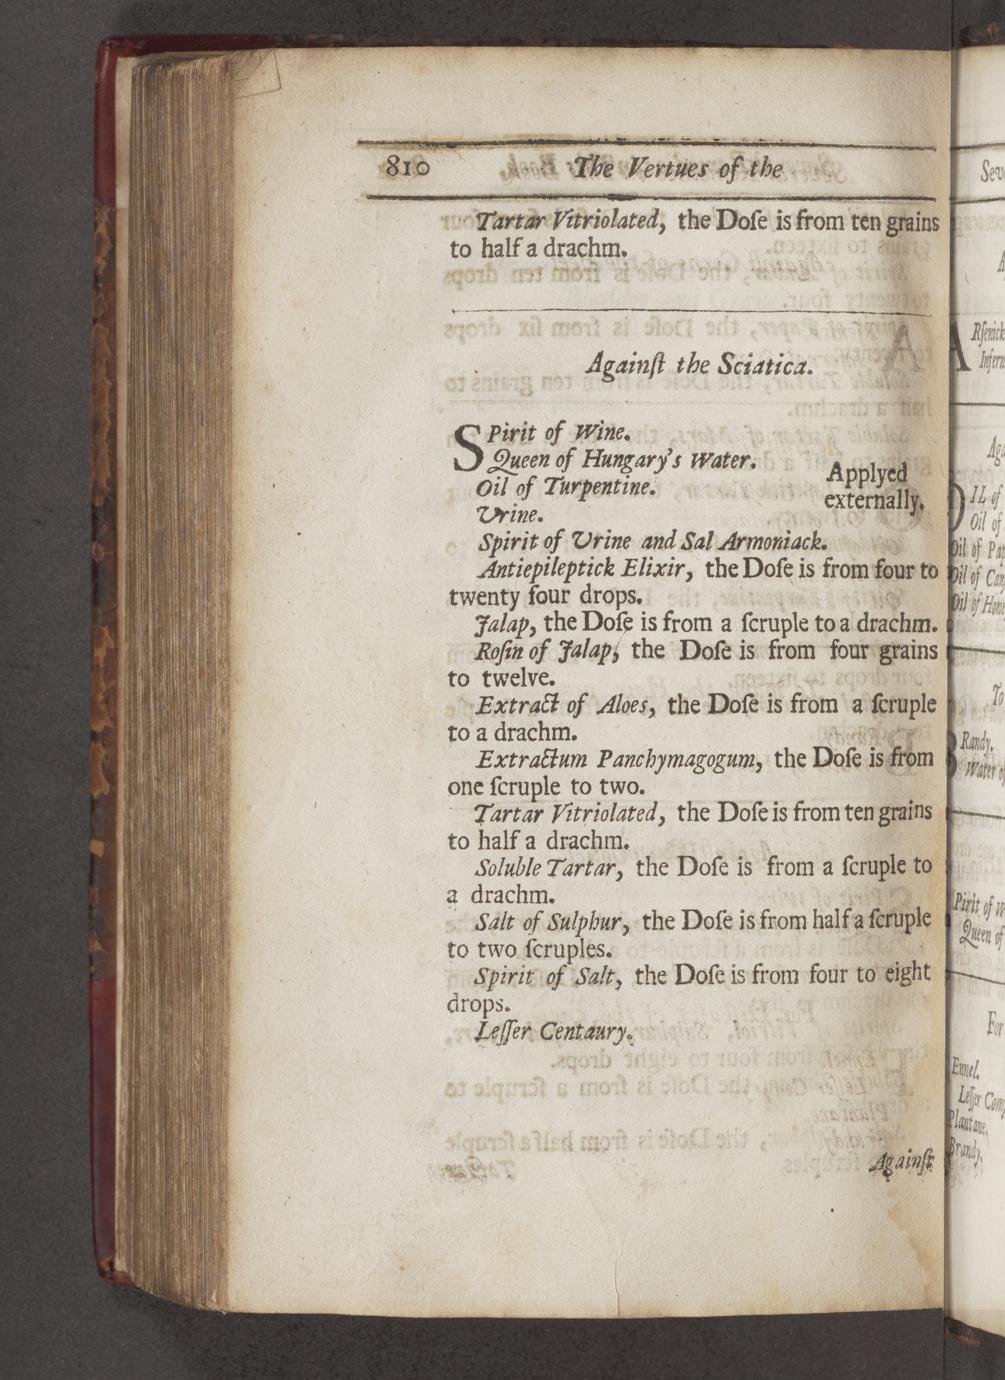 810 The Vertues of the
Tartar Vitriolated, the Doſe is from ten grains
to half a drachm.
Againſt the Sciatica.
SPirit of Wine.
Queen of Hungary's Water.
Oil of Turpentine.
Urine.
Applyed
externally.
Spirit of Urine and Sal Armoniack.
Antiepileptick Elixir, the Doſe is from four to
twenty four drops.
Jalap, the Doſe is from a ſcruple to a drachm.
Roſin of Jalap, the Doſe is from four grains
to twelve.
Extract of Aloes, the Doſe is from a ſcruple
to a drachm.
Extractum Panchymagogum, the Doſe is from
one ſcruple to two.
Tartar Vitriolated, the Doſe is from ten grains
to half a drachm.
Soluble Tartar, the Doſe is from a ſcruple to
a drachm.
Salt of Sulphur, the Doſe is from half a ſcruple
to two ſcruples.
Spirit of Salt, the Doſe is from four to eight
drops.
Leſſer Centaury.
Againſt
Oil of
Randy.
Water
Queen of
For
Leſſer
Plantane.
Brandy.